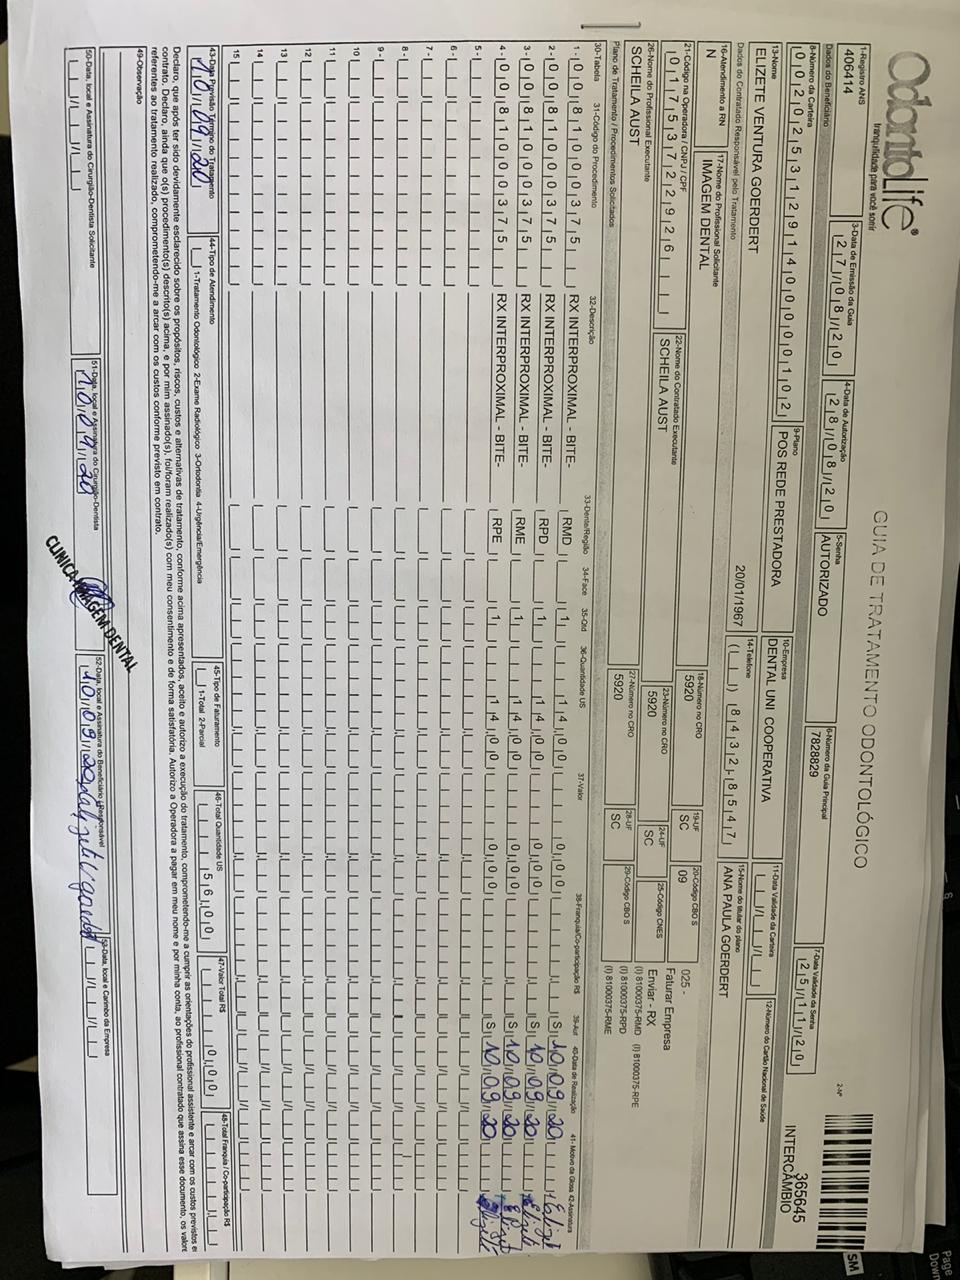 OdontoLife®
tranquilidade para você sorrir
GUIA DE TRATAMENTO ODONTOLÓGICO
2-Nº
365645
INTERCÂMBIO
1-Registro ANS
406414
3-Data de Emissão da Guia
27/08/20
4-Data de Autorização
28/08/20
5-Senha
AUTORIZADO
6-Número da Guia Principal
7828829
7-Data Validade da Senha
25/11/20
Dados do Beneficiário
8-Número da Carteira
00202531291400000102
9-Plano
POS REDE PRESTADORA
10-Empresa
DENTAL UNI COOPERATIVA
11-Data Validade da Carteira
12-Número do Cartão Nacional de Saúde
13-Nome
ELIZETE VENTURA GOERDERT
20/01/1967
14-Telefone
( ) 8432-8547
15-Nome do titular do plano
ANA PAULA GOERDERT
Dados do Contratado Responsável pelo Tratamento
16-Atendimento a RN
N
17-Nome do Profissional Solicitante
IMAGEM DENTAL
18-Número no CRO
5920
19-UF
SC
20-Código CBO S
09
025 -
Faturar Empresa
Enviar - RX
(I) 81000375-RMD (I) 81000375-RPE
(I) 81000375-RPD
(I) 81000375-RME
21-Código na Operadora / CNPJ / CPF
01753722926
22-Nome do Contratado Executante
SCHEILA AUST
23-Número no CRO
5920
24-UF
SC
25-Código CNES
26-Nome do Profissional Executante
SCHEILA AUST
27-Número no CRO
5920
28-UF
SC
29-Código CBO S
Plano de Tratamento / Procedimentos Solicitados
30-Tabela 31-Código do Procedimento 32-Descrição 33-Dente/Região 34-Face 35-Qtd 36-Quantidade US 37-Valor 38-Franquia/Co-participação R$ 39-Aut 40-Data de Realização 41-Motivo da Glosa 42-Assinatura
1- 00 81000375 RX INTERPROXIMAL - BITE- RMD 1 14,00 0,00 S 10/09/20
2- 00 81000375 RX INTERPROXIMAL - BITE- RPD 1 14,00 0,00 S 10/09/20
3- 00 81000375 RX INTERPROXIMAL - BITE- RME 1 14,00 0,00 S 10/09/20
4- 00 81000375 RX INTERPROXIMAL - BITE- RPE 1 14,00 0,00 S 10/09/20
5-
6-
7-
8-
9-
10
11
12
13
14
15
43-Data Previsão Término do Tratamento
10/09/20
44-Tipo de Atendimento
1-Tratamento Odontológico 2-Exame Radiológico 3-Ortodontia 4-Urgência/Emergência
45-Tipo de Faturamento
1-Total 2-Parcial
46-Total Quantidade US
56,00
47-Valor Total R$
0,00
48-Total Franquia / Co-participação R$
Declaro, que após ter sido devidamente esclarecido sobre os propósitos, riscos, custos e alternativas de tratamento, conforme acima apresentados, aceito e autorizo a execução do tratamento, comprometendo-me a cumprir as orientações do profissional assistente e arcar com os custos previstos em
contrato. Declaro, ainda que o(s) procedimento(s) descrito(s) acima, e por mim assinado(s), foi/foram realizado(s) com meu consentimento e de forma satisfatória. Autorizo a Operadora a pagar em meu nome e por minha conta, ao profissional contratado que assina esse documento, os valores
referentes ao tratamento realizado, comprometendo-me a arcar com os custos conforme previsto em contrato.
49-Observação
50-Data, local e Assinatura do Cirurgião-Dentista Solicitante
51-Data, local e Assinatura do Cirurgião-Dentista
10/09/20
CLINICA IMAGEM DENTAL
52-Data, local e Assinatura do Beneficiário / Responsável
10/09/20
53-Data, local e Carimbo da Empresa
Page
Down
SM